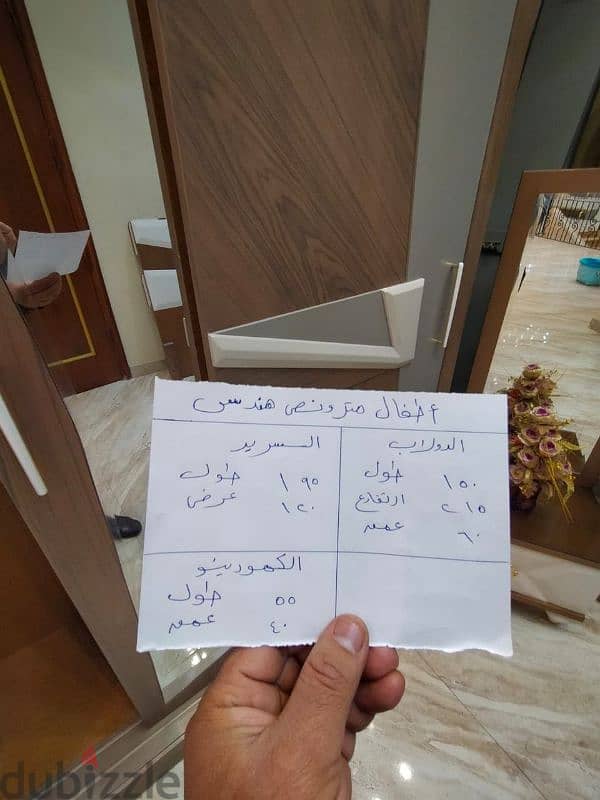 أطفال مترونص هندسى
الدولاب
طول ١٥٠
ارتفاع ٢١٥
عمق ٦٠
السرير
طول ١٩٥
عرض ١٢٠
الكمودينو
طول ٥٥
عمق ٤٠
dubizzle